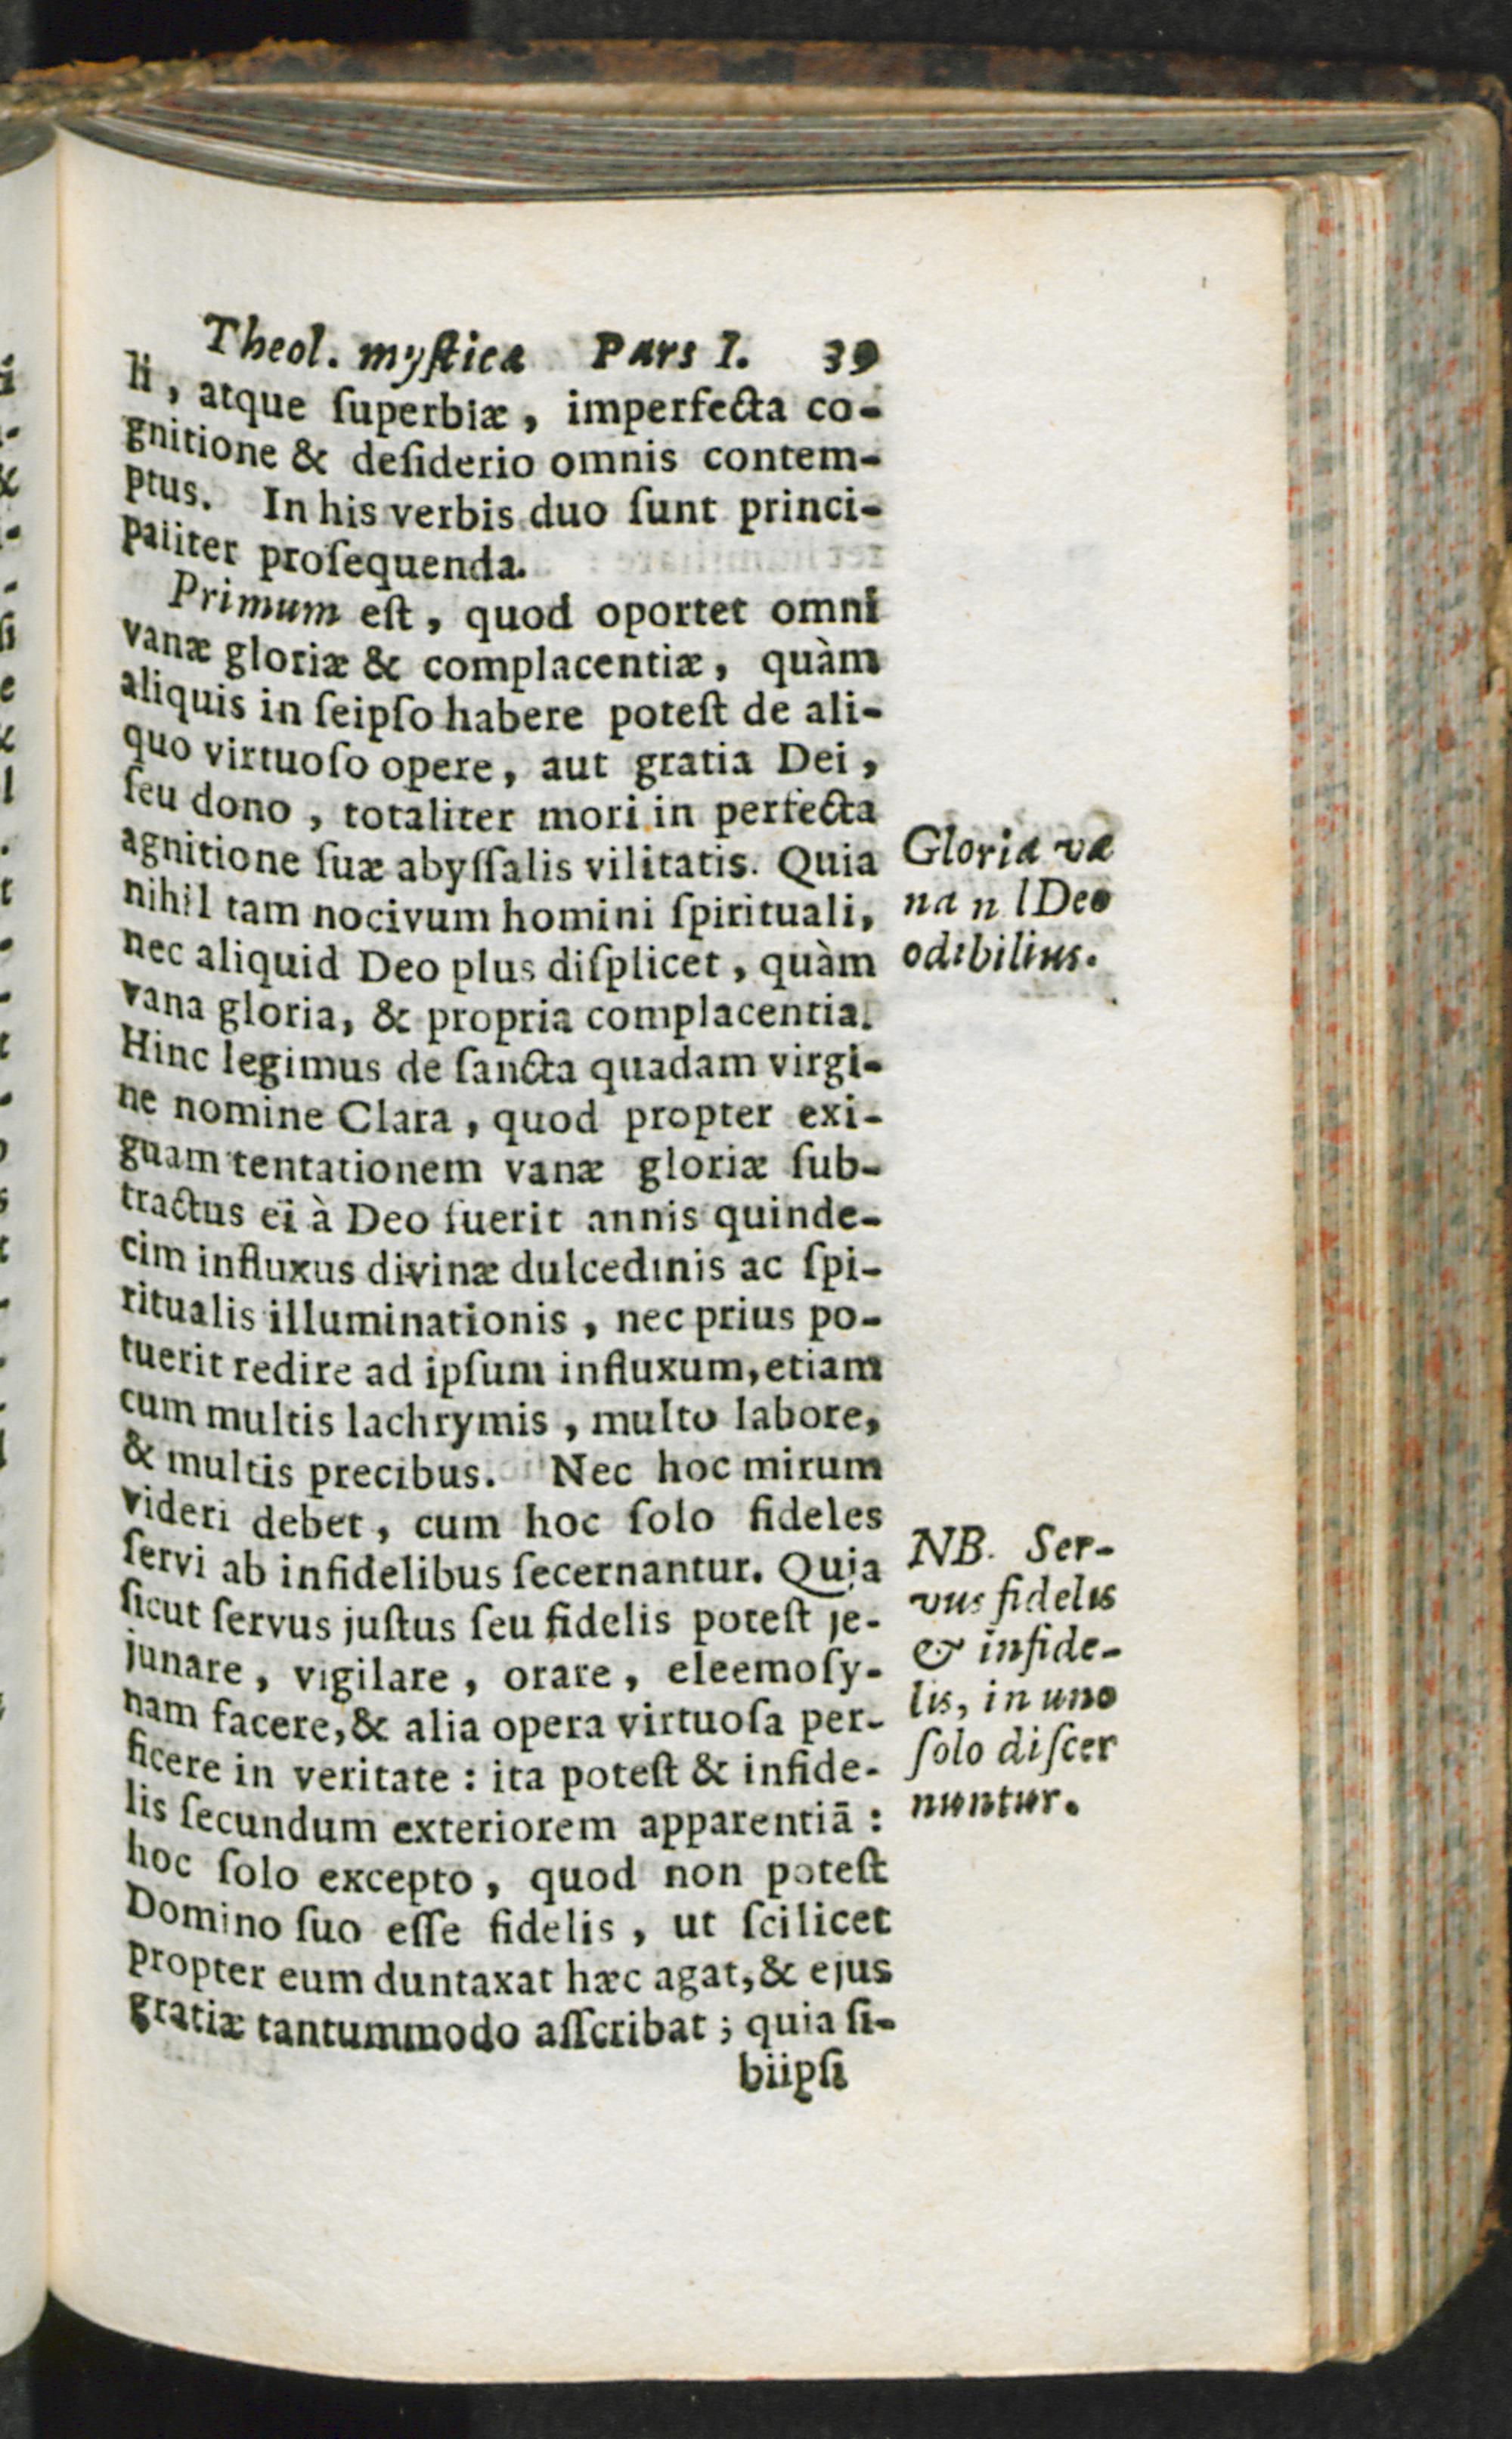 Theol. mystica Pars I. 39
li, atque ſuperbiæ, imperfecta co-
gnitione & deſiderio omnis contem-
ptus. In his verbis duo ſunt princi-
paliter proſequenda.
Primum eſt, quod oportet omni
vanæ gloriæ & complacentiæ, quàm
aliquis in ſeipſo habere poteſt de ali-
quo virtuoſo opere, aut gratia Dei,
ſeu dono, totaliter mori in perfecta
agnitione ſuæ abyſſalis vilitatis. Quia
nihil tam nocivum homini ſpirituali,
nec aliquid Deo plus diſplicet, quàm
vana gloria, & propria complacentia.
Hinc legimus de ſancta quadam virgi-
ne nomine Clara, quod propter exi-
guam tentationem vanæ gloriæ ſub-
tractus ei à Deo fuerit annis quinde-
cim influxus divinæ dulcedinis ac ſpi-
ritualis illuminationis, nec prius po-
tuerit redire ad ipſum influxum, etiam
cum multis lachrymis, multo labore,
& multis precibus. Nec hoc mirum
videri debet, cum hoc ſolo fideles
ſervi ab infidelibus ſecernantur. Quia
ſicut ſervus juſtus ſeu fidelis poteſt je-
junare, vigilare, orare, eleemoſy-
nam facere, & alia opera virtuoſa per-
ficere in veritate: ita poteſt & infide-
lis ſecundum exteriorem apparentiā:
hoc ſolo excepto, quod non poteſt
Domino ſuo eſſe fidelis, ut ſcilicet
propter eum duntaxat hæc agat, & ejus
gratiæ tantummodo aſſcribat; quia ſi-
biipſi
Gloria va
na n l Deo
odibilius.
NB. Ser-
vus fidelis
& infide-
lis, in uno
ſolo diſcer
nuntur.